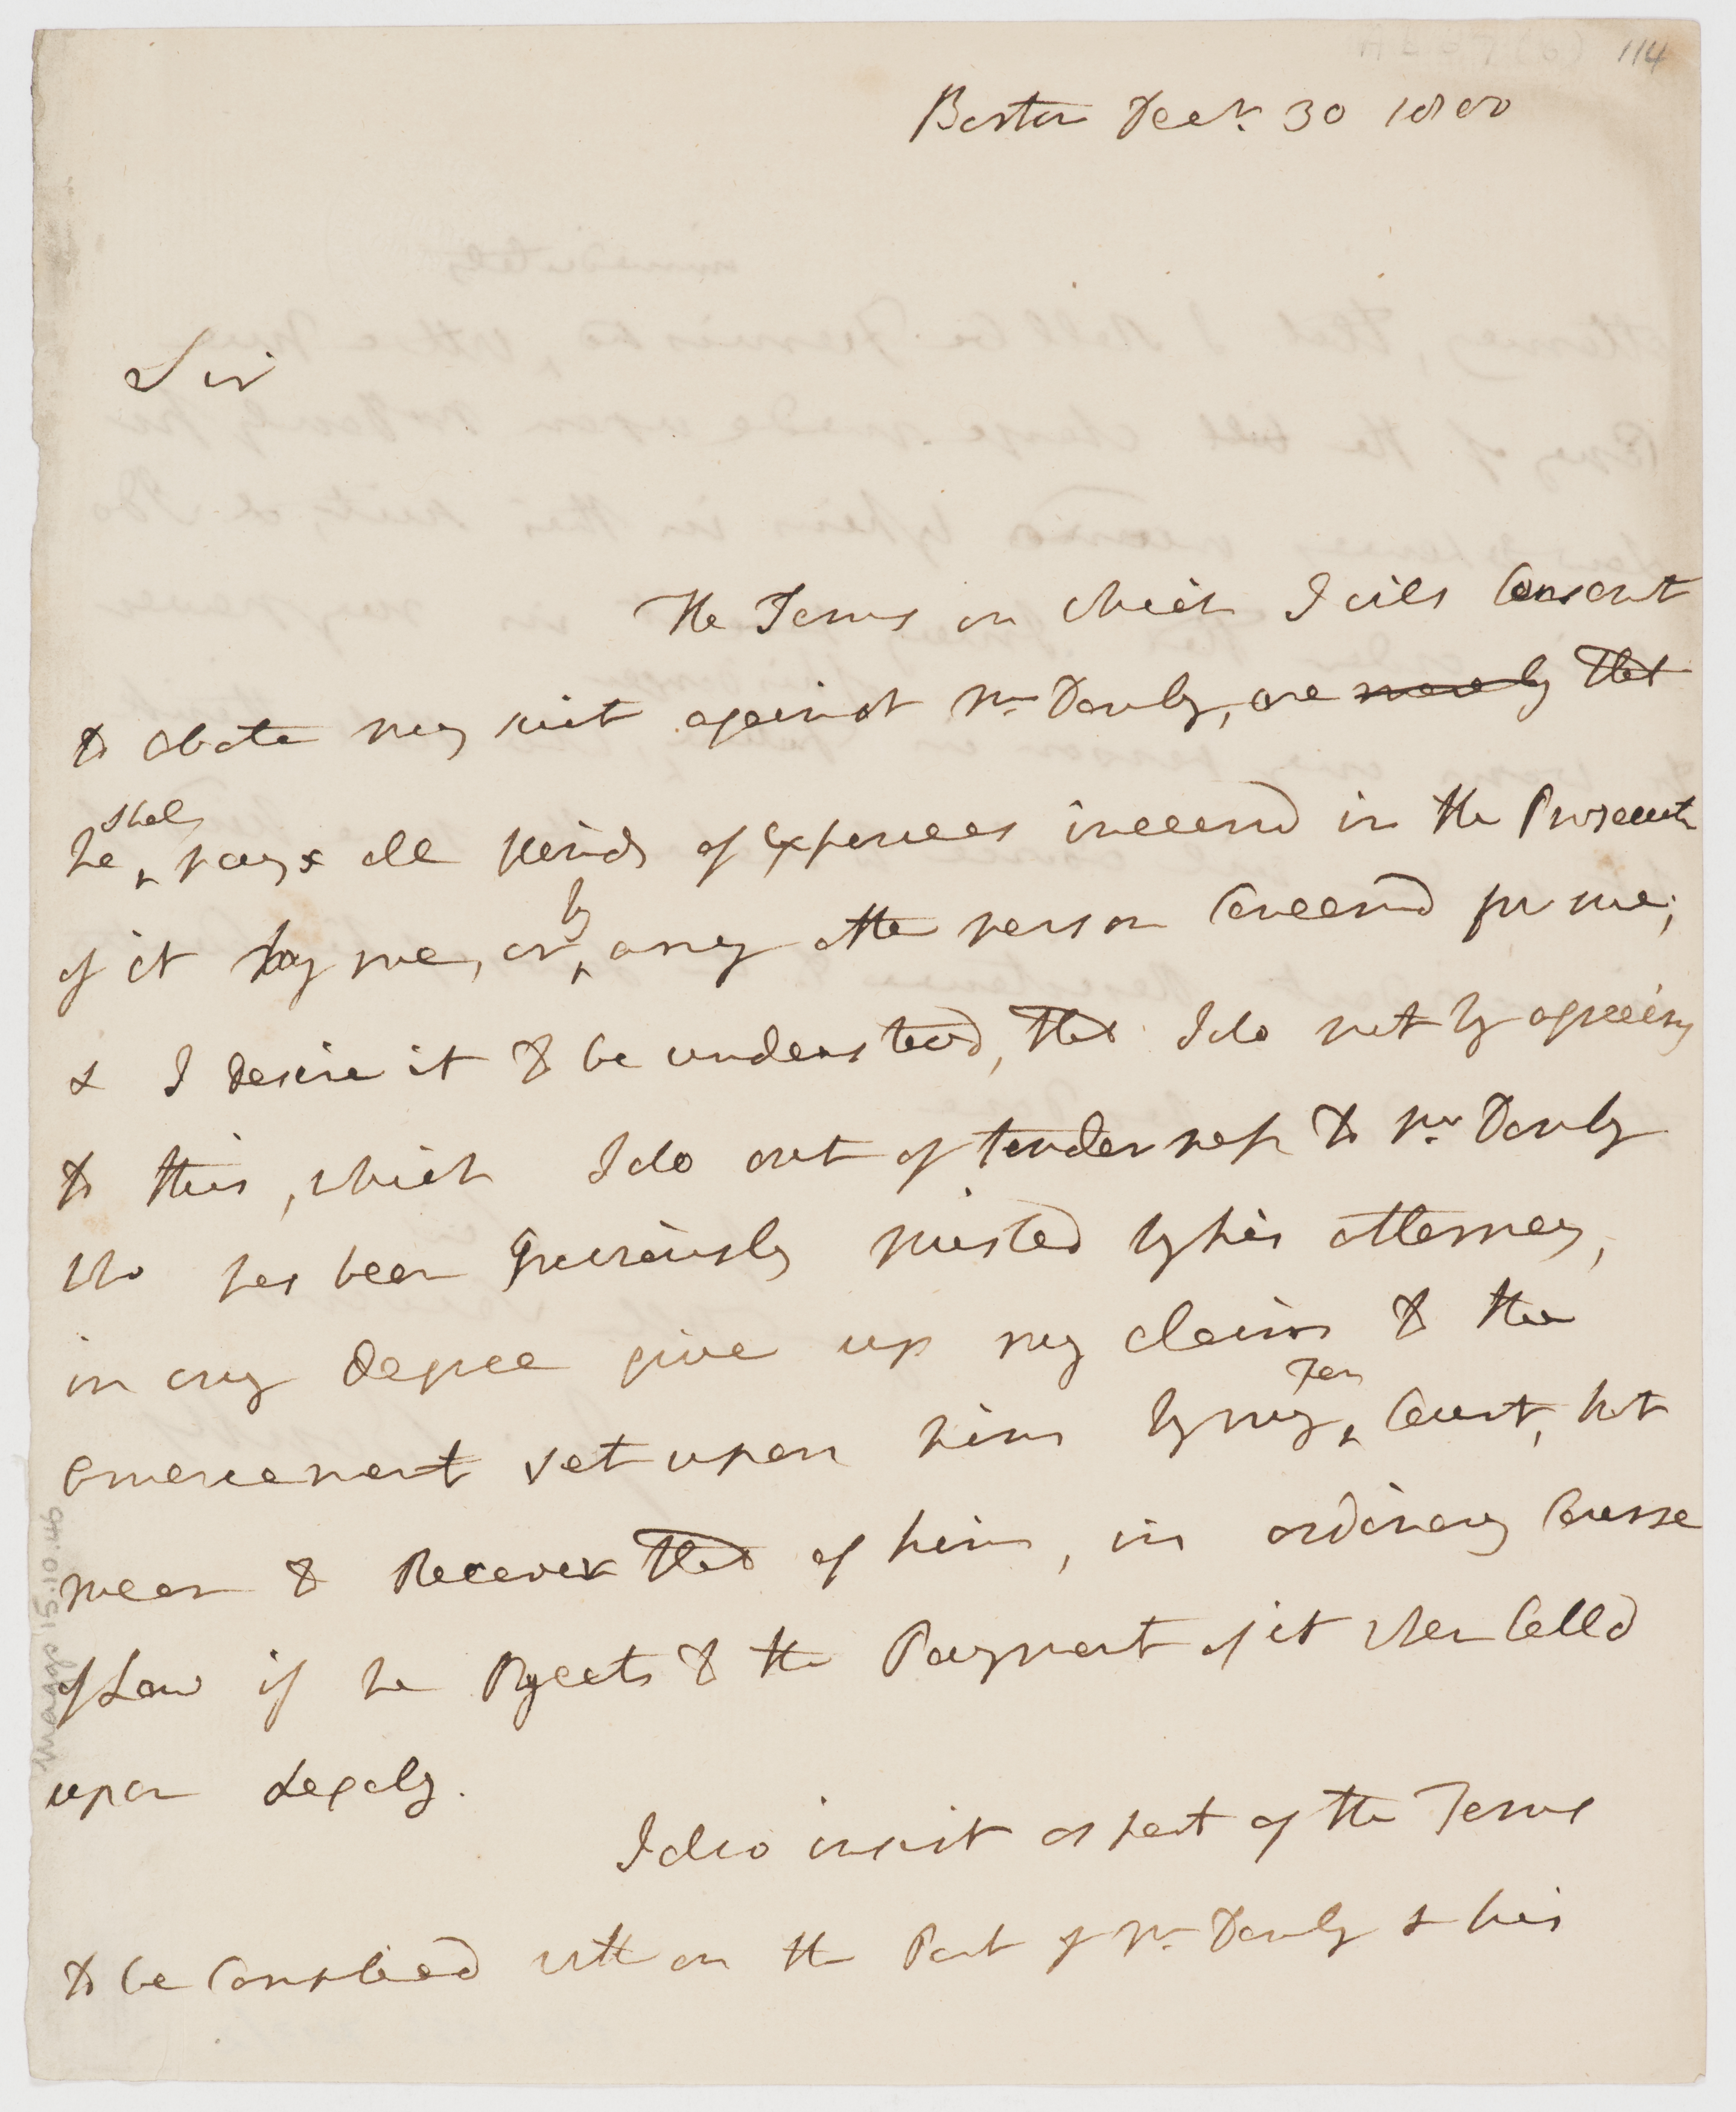 114
Boston Decr. 30 1800
Sir
The Terms on which I will Consent
to abate my suit against Mr Danby, are merely that
shall
he pays all kinds of Expences incurrd in the Prosecuti
by
of it by me, or any other person Concernd for me;
& I desire it to be understood, that I do not by agreeing
to this, which I do out of tenderness to Mr Danby
who has been Grieviously misled by his attorney,
in any degree give up my claim to the
Fen
amercement set upon him by my Court, but
mean to Recover that of him, in ordinary Course
of Law if he Objects to the Payment of it when Calld
upon Legaly.
I also insist as part of the Terms
to be Complied with on the Part of Mr Danby & his